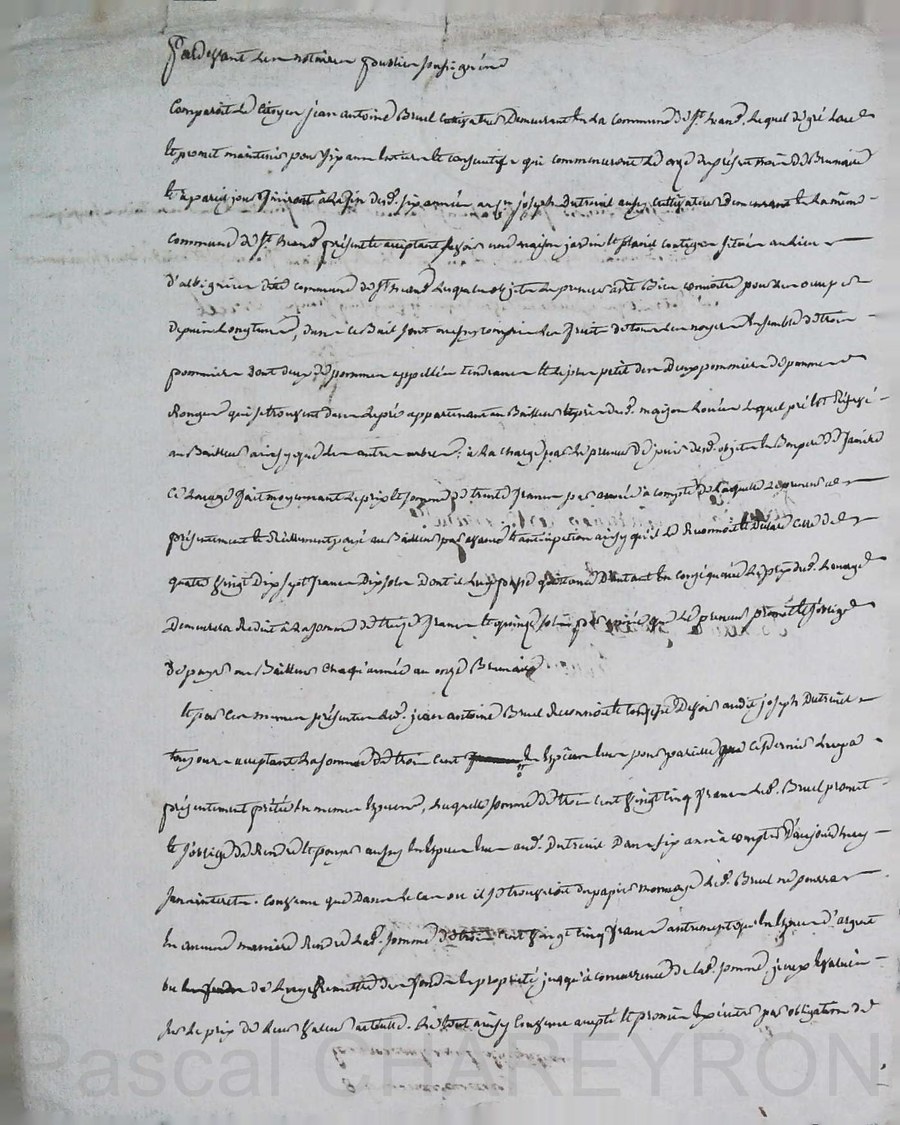 Pardevant les notaires soussignés
Comparoit le Citoyen jean antoine Bruel Cultivateur Demeurant en la Commune de St. , lequel de gré loue
et promet maintenir pour six années entières et consécutifs qui commenceront le onze du présent mois de Brumaire
et à pareil jour finiront à la fin desd. six années au sr joseph Dutreuil aussy Cultivateur demeurant en la même
commune de St. présent et acceptant sçavoir une maison jardin et contigu situés au lieu
d' dite commune de St. lesquels objets le preneur a dit Bien connoitre pour les occuper
depuis longtems, dans ce Bail sont aussy compris les fruits de tous les noyers Ensemble de trois
pommiers dont deux de pommes appellées tendranes et le plus petit des Deux pommiers de pommes
Rouges qui se trouvent dans le pré appartenant au Bailleur près desd. maison louée lequel pré est Réservé
au Bailleur ainsy que les autres arbres, à la charge par le preneur de jouir desd. objets en Bon père de famille
Ce louage fait moyennant le prix et somme de trente francs par année à compte de laquelle le preneur a
présentement et Réellement payé au Bailleur par avance et anticipation ainsy qu'il le Reconnoit et Déclare celle de
quatre vingt Dix sept francs Dix sols dont il luy passe quittance Dautant En conséquence le prix dud. louage
Demeurera Réduit à la somme de treize francs et quinze sols par année que le preneur promet et s'oblige
De payer au Bailleur chaque année au onze Brumaire
et par ces mêmes présentes led. jean antoine Bruel Reconnoit et Confesse Devoir audit joseph Dutreuil
toujours acceptant la somme de trois cent En Espèces pour pareille que ce dernier luy a
présentement prêtée en mêmes Espèces, laquelle somme de trois cent vingt cinq francs led. Bruel promet
et s'oblige de Rendre et payer aussy en Espèces aud. Dutreuil Dans six ans à compter D'aujourdhuy
sans intérêts. Convenu que Dans le cas où il se trouveroit du papier monnoye led. Bruel ne pourra
En aucune manière Rendre lad. somme de trois cent vingt cinq francs autrement qu'en Espèces d'argent
ou de luy Remettre des fonds en propriété jusqu'à concurrence de lad. somme, yceux Evalués
sur le prix de leur valeur actuelle. Le tout ainsy Convenu accepté et promis Exécuter par obligation de
Pascal CHAREYRON